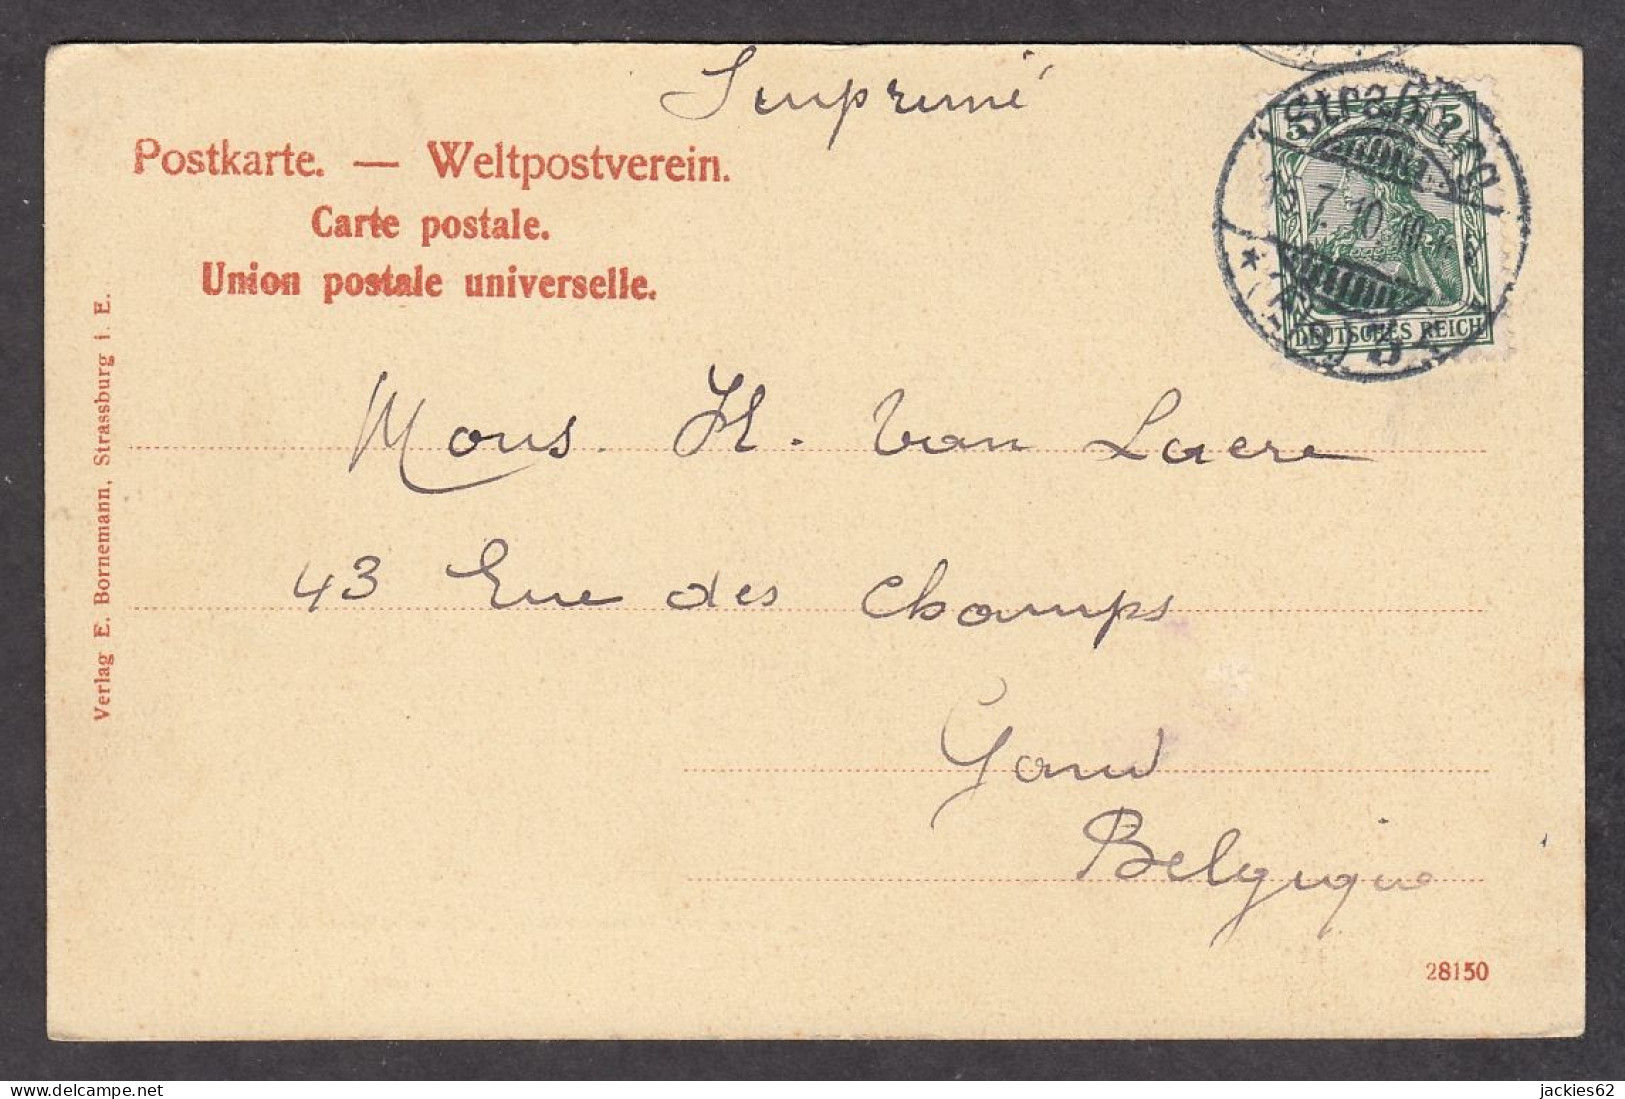 Imprimé
Postkarte. — Weltpostverein.
Carte postale.
Union postale universelle.
5 5
DEUTSCHES REICH
7.10.10
Mons. H. Van Laere
43 Rue des Champs
Gand
Belgique
Verlag E. Bornemann, Strassburg i. E.
28150
www.delcampe.net
jackies62